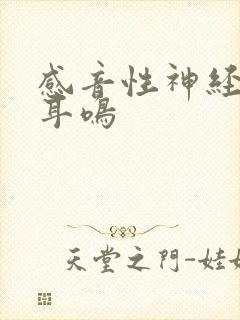 感音性神経
耳鳴
天堂之門-娃娃